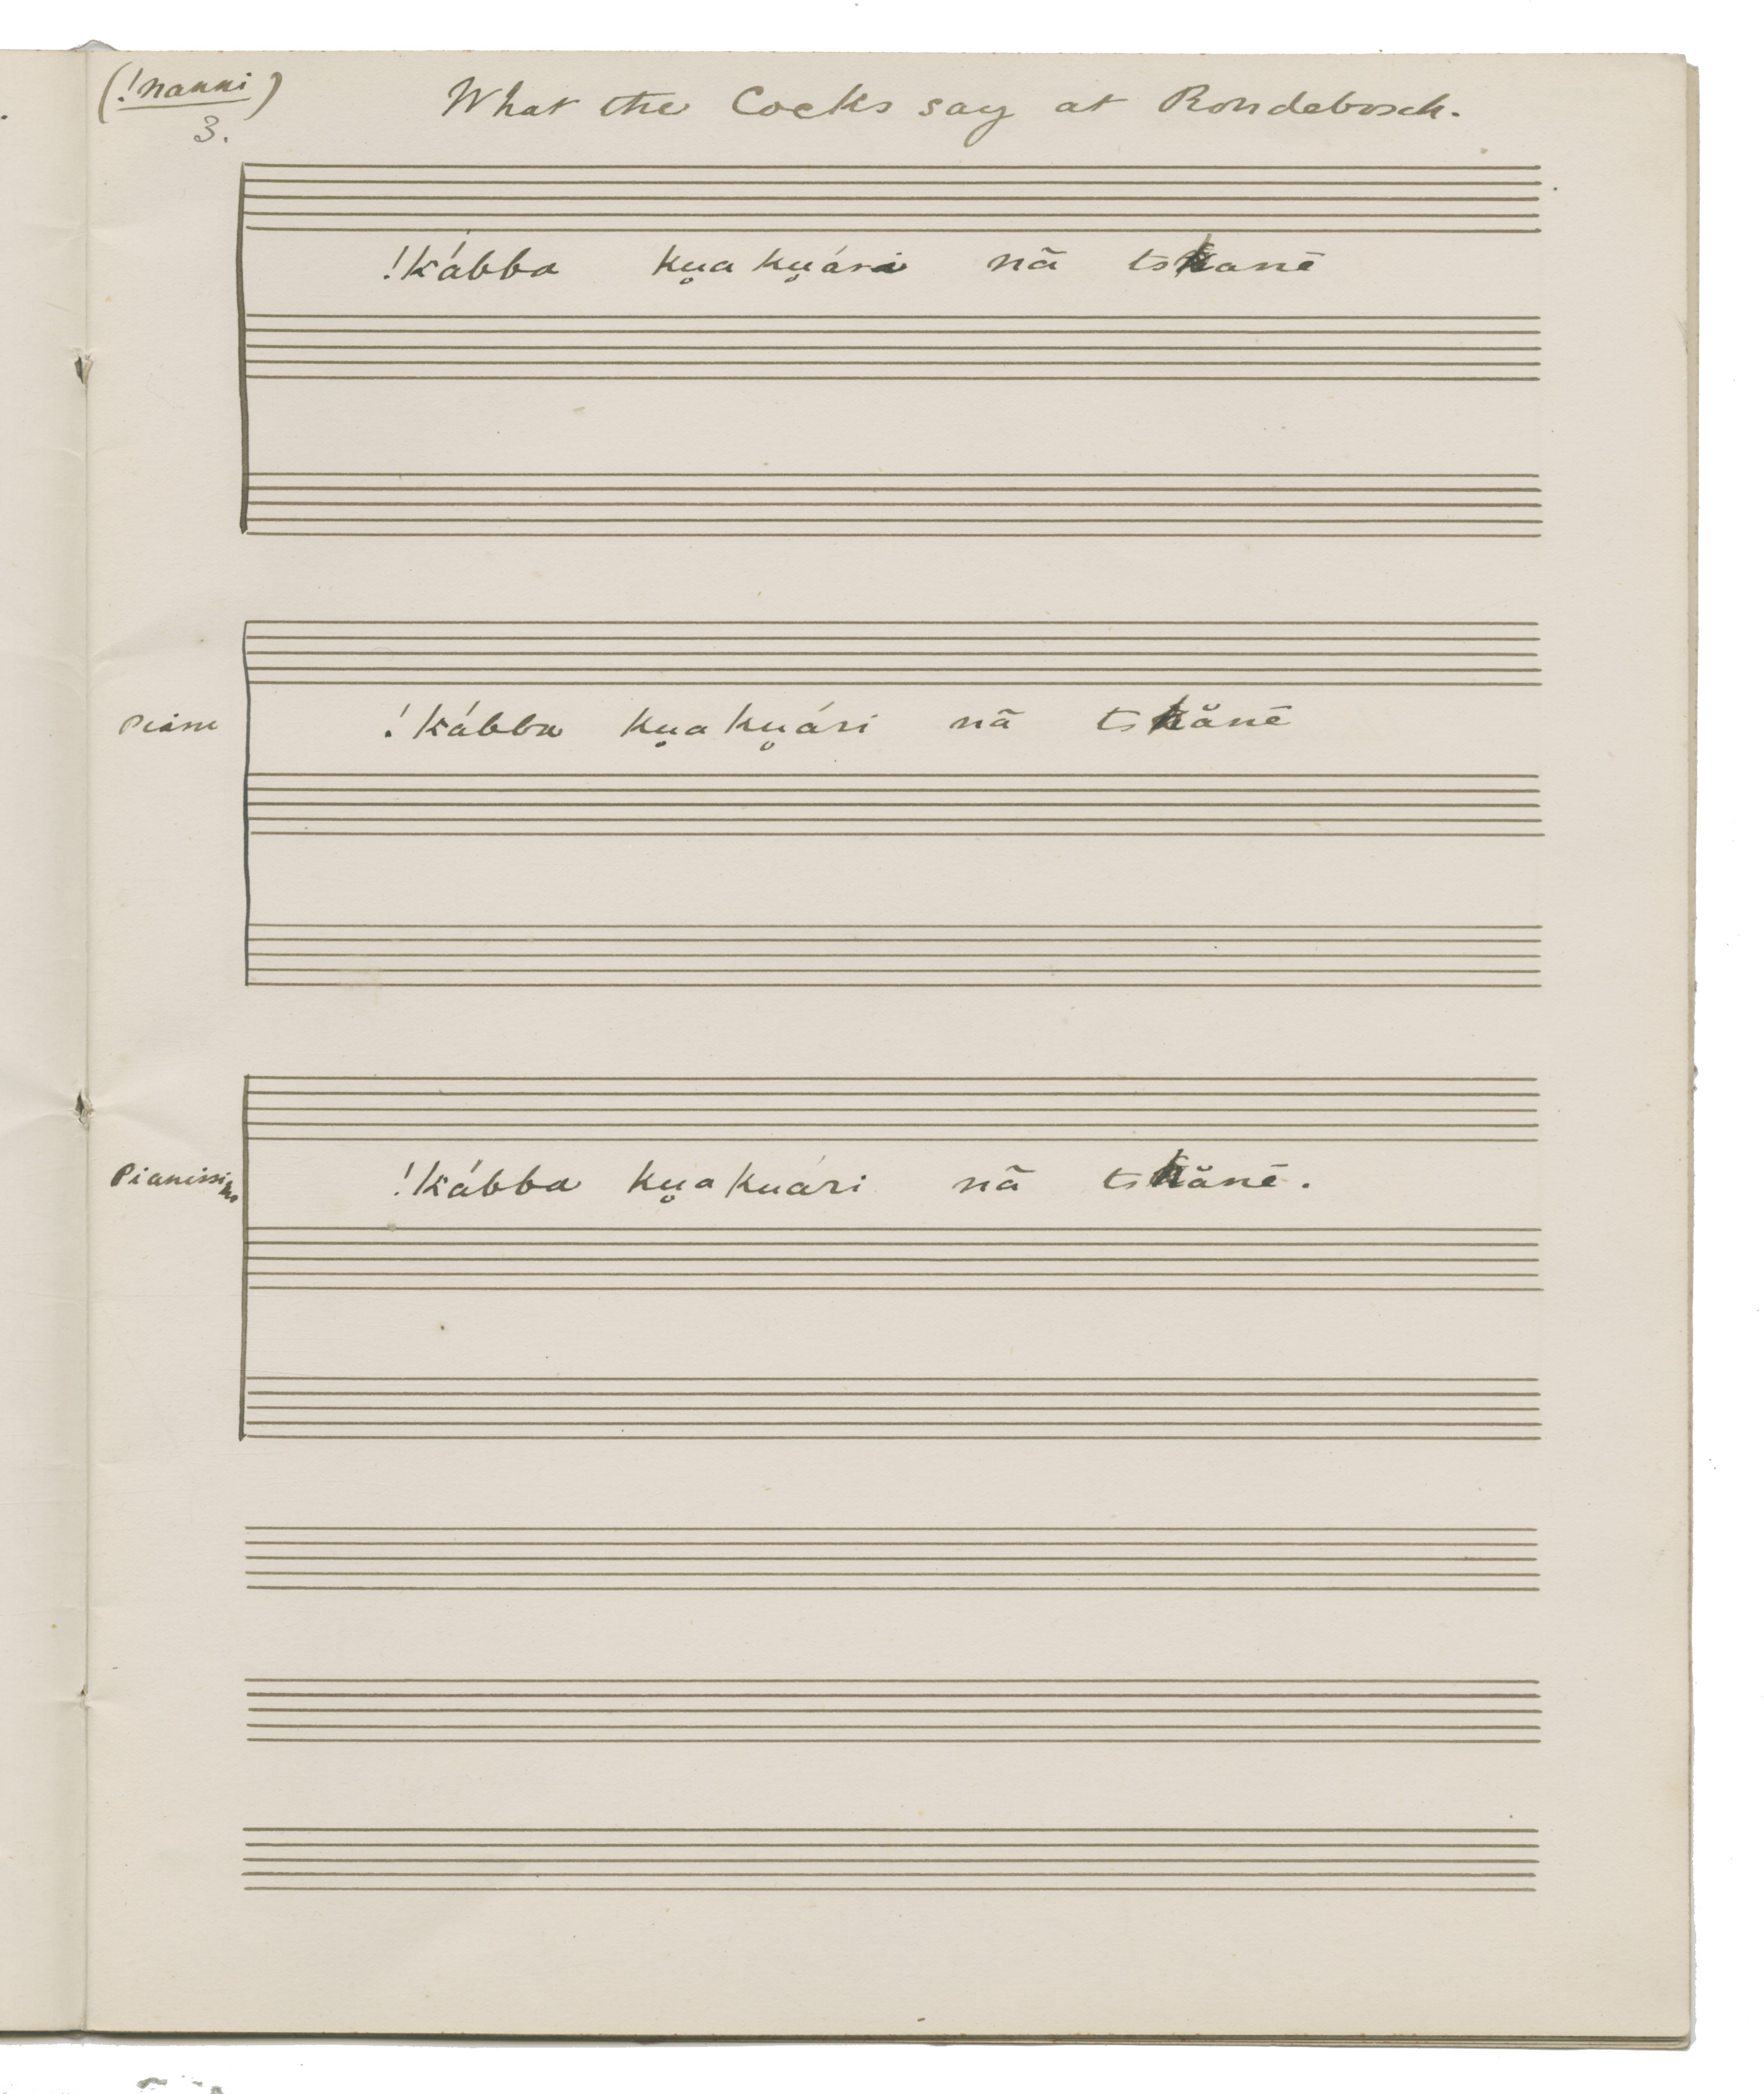 (!nanni)
3.
What the Cocks say at Rondebosch.
!kábba ku̥a ku̥ári nã tskanē
Piano
!kábba ku̥a ku̥ári nã tskănē
Pianissimo
!kábba ku̥a kuári nã tskănē.